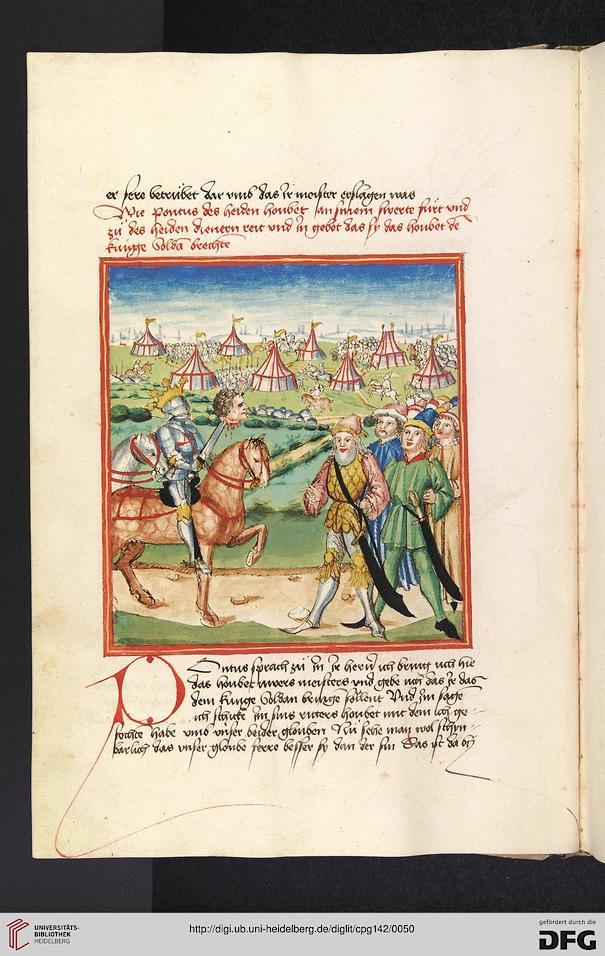 er sere betrübet dar vmb das ir meister erslagen was
Wie pontus des heiden houbet an sinem swerte fürt vnd
zü des heiden dienern reit vnd in gebot das sy das houbet de
künge Soldan brechte
Ontus sprach zü in Ir herren ich bring üch hie
P
das houbet uwers meisters vnd gebe üch das Ir das
dem künge Soldan bringe söllent Vnd im sage
ich schicke im sins ritters houbet mit dem ich ge-
fochte habe vmb vnser beider glouben Nü sehe man wol schyn-
barlich das vnser gloube ferre besser sy dan der sin Das ist da
UNIVERSITÄTS-
BIBLIOTHEK
HEIDELBERG
http://digi.ub.uni-heidelberg.de/diglit/cpg142/0050
gefördert durch die
DFG